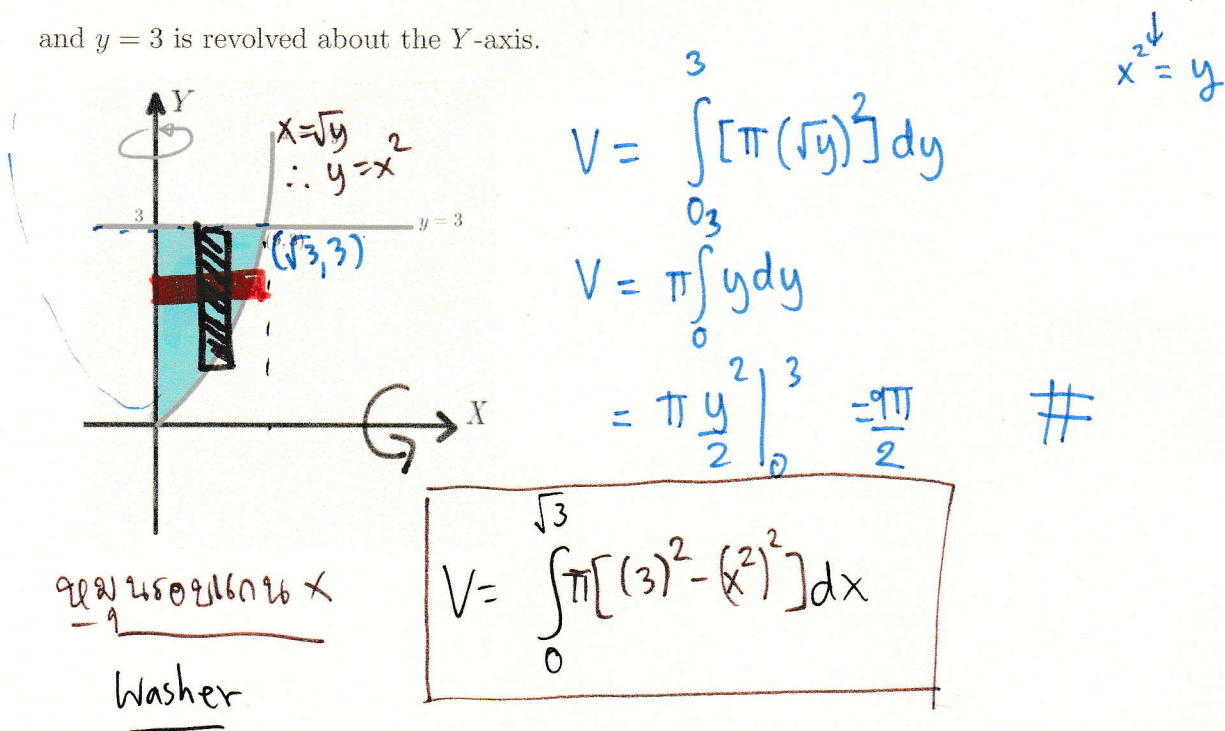 and y = 3 is revolved about the Y-axis.
x² = y
Y
x=√y
∴ y=x²
3
y = 3
(√3,3)
X
V = ∫₀³ [π(√y)²] dy
V = π∫₀³ y dy
= π y²/2 |₀³ = 9π/2 #
หมุนรอบแกน X
Washer
V = ∫₀^√3 π[(3)² - (x²)²] dx